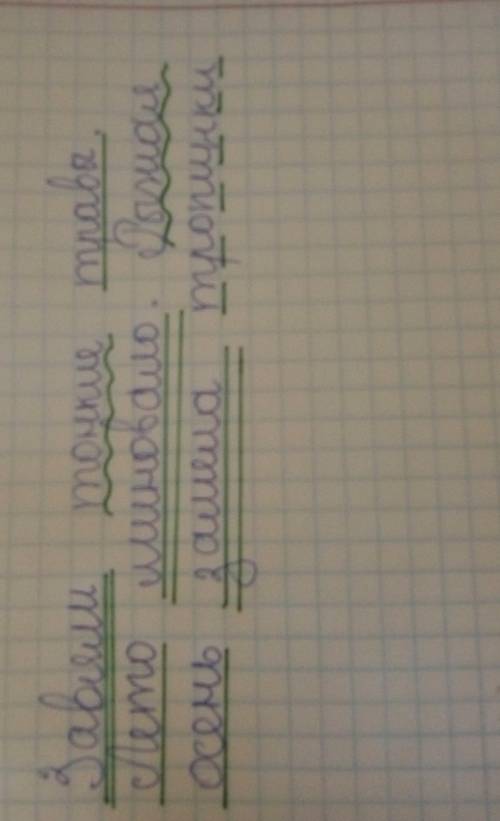 Завяли тонкие травы.
Лето миновало. Рыжая
осень замела тропинки